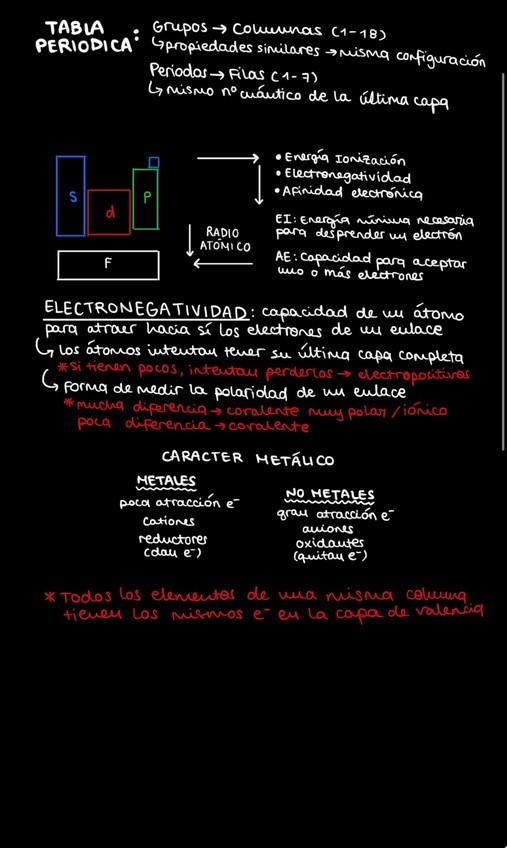 TABLA PERIODICA:
Grupos → Columnas (1-18)
↳propiedades similares → misma configuración
Periodos → Filas (1-7)
↳ mismo nº cuántico de la última capa
S
d
P
F
RADIO
ATÓMICO
• Energía Ionización
• Electronegatividad
• Afinidad electrónica
EI: Energía mínima necesaria
para desprender un electrón
AE: Capacidad para aceptar
uno o más electrones
ELECTRONEGATIVIDAD: capacidad de un átomo
para atraer hacia sí los electrones de un enlace
↳ Los átomos intentan tener su última capa completa
*Si tienen pocos, intentan perderlos → electropositivos
↳ Forma de medir la polaridad de un enlace
*mucha diferencia → covalente muy polar / iónico
poca diferencia → covalente
CARACTER METÁLICO
METALES
poca atracción e⁻
cationes
reductores
(dan e⁻)
NO METALES
gran atracción e⁻
aniones
oxidantes
(quitan e⁻)
* Todos los elementos de una misma columna
tienen los mismos e⁻ en la capa de valencia